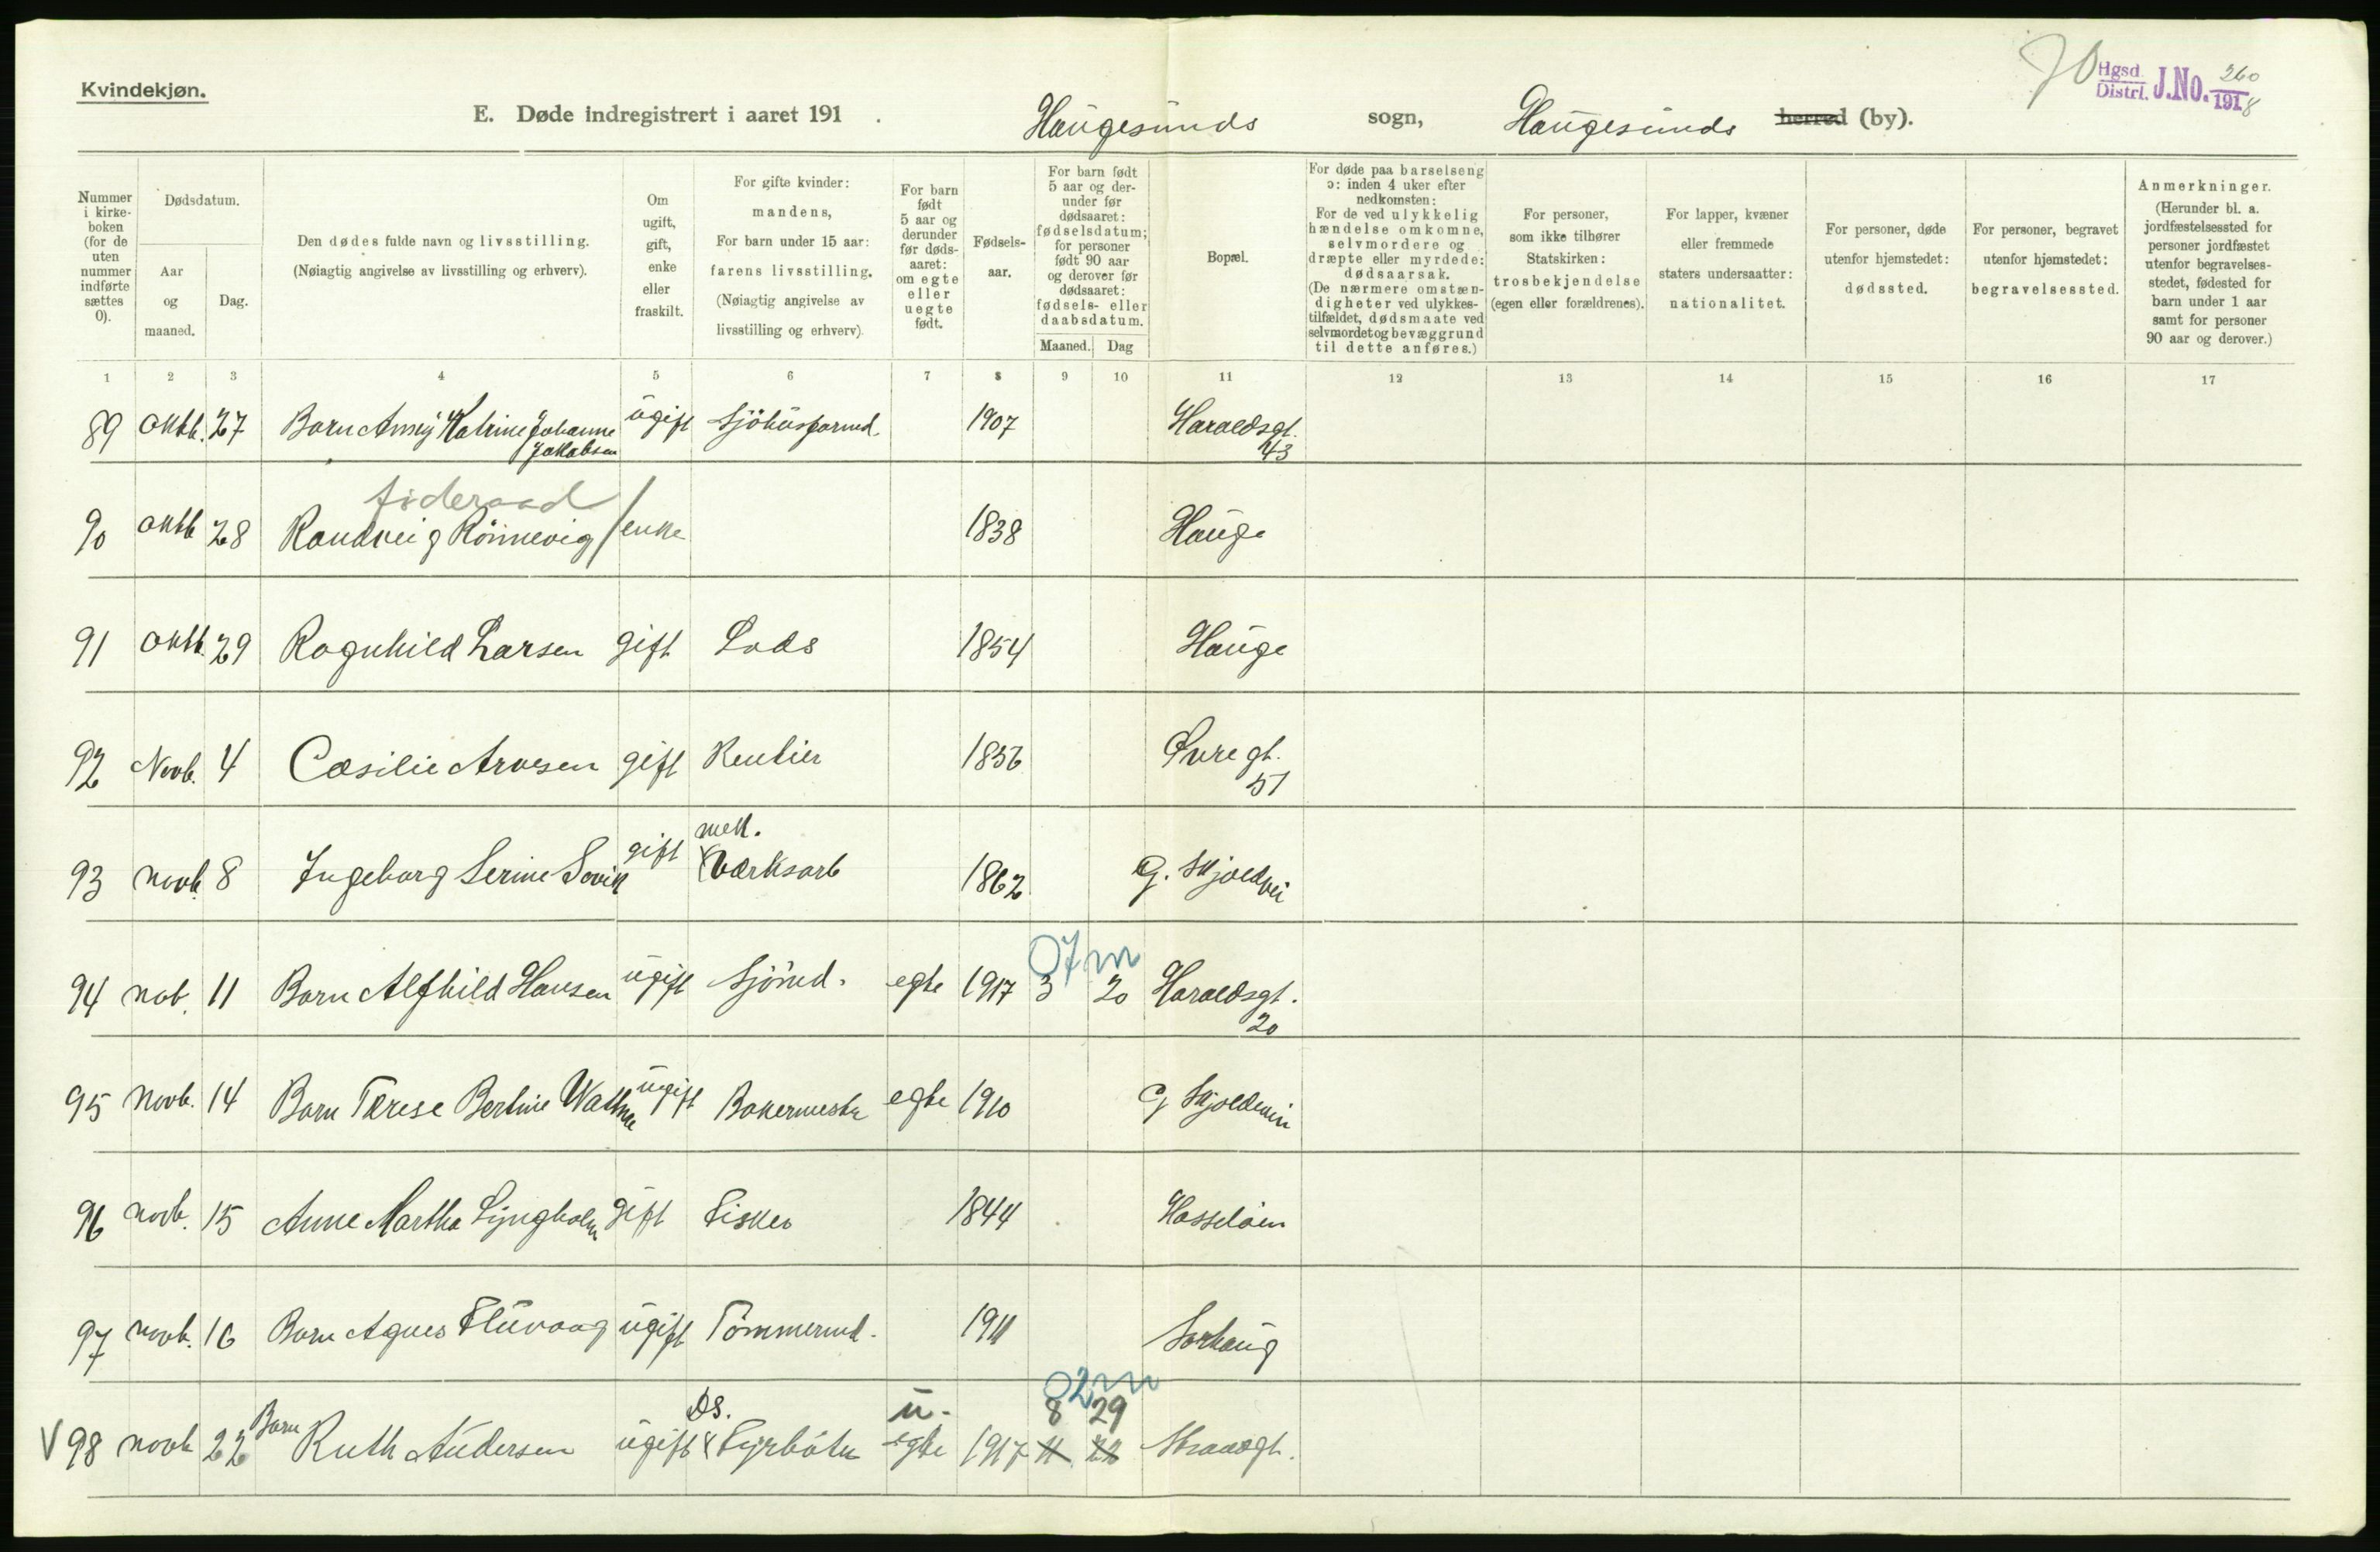 Kvindekjøn.
E. Døde indregistrert i aaret 191 .
Haugesunds sogn, Haugesunds herred (by).
70
Hgsd. Distrl. J.No. 260 1918
Nummer i kirkeboken (for de uten nummer indførte sættes 0).
Dødsdatum.
Aar og maaned.
Dag.
Den dødes fulde navn og livsstilling.
(Nøiagtig angivelse av livsstilling og erhverv).
Om ugift, gift, enke eller fraskilt.
For gifte kvinder: mandens,
For barn under 15 aar: farens livsstilling.
(Nøiagtig angivelse av livsstilling og erhverv).
For barn født 5 aar og derunder før dødsaaret: om egte eller uegte født.
Fødselsaar.
For barn født 5 aar og derunder før dødsaaret: fødselsdatum; for personer født 90 aar og derover før dødsaaret: fødsels- eller daabsdatum.
Maaned. Dag
Bopæl.
For døde paa barselseng ɔ: inden 4 uker efter nedkomsten:
For de ved ulykkelig hændelse omkomne, selvmordere og dræpte eller myrdede: dødsaarsak.
(De nærmere omstændigheter ved ulykkestilfældet, dødsmaate ved selvmordet og bevæggrund til dette anføres.)
For personer, som ikke tilhører Statskirken: trosbekjendelse (egen eller forældrenes).
For lapper, kvæner eller fremmede staters undersaatter: nationalitet.
For personer, døde utenfor hjemstedet: dødssted.
For personer, begravet utenfor hjemstedet: begravelsessted.
Anmerkninger.
(Herunder bl. a. jordfæstelsessted for personer jordfæstet utenfor begravelsesstedet, fødested for barn under 1 aar samt for personer 90 aar og derover.)
1 2 3 4 5 6 7 8 9 10 11 12 13 14 15 16 17
89 oktb. 27 Barn Anny Katrine Johanne Jakobsen ugift Sjöhusformd. 1907 Haraldsgt. 43
föderaad
90 oktb 28 Randveig Rönnevig / enke 1838 Hauge
91 oktb. 29 Ragnhild Larsen gift Lods 1854 Hauge
92 Novb. 4 Cæsilie Arvesen gift Rentier 1836 Øvregt. 51
93 novb. 8 Ingeborg Serine Sovik gift mek. Værksarb 1862 G. Skjoldvei
07m
94 nob. 11 Barn Alfhild Hansen ugift Sjömd. egte 1917 3 20 Haraldsgt. 20
95 Novb. 14 Barn Terese Bertine Wathne ugift Bakermester egte 1910 G Skjoldvei
96 novb. 15 Anne Martha Lyngholm gift Fisker 1844 Hasseløen
97 novb. 16 Barn Agnes Fluvaag ugift Tömmermd. 1911 Sørhaug
02m
DS. u. 8 29
V 98 novb 22 Barn Ruth Andersen ugift Fyrböter egte 1917 11 22 Strandgt.